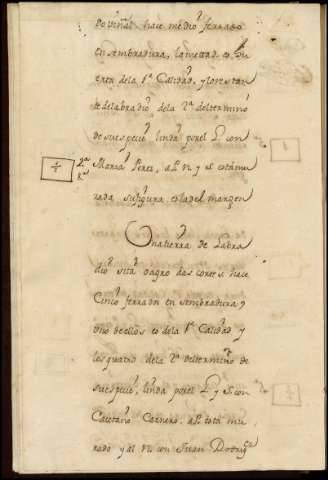 de viñas hace medio ferrado
en sembradura, la mettad es hu
erta de la 1ª Calidad, y lo restan
te de labradio de la 2ª del termino
de su especie, linda por el L. con
Maria Perez, al P. N. y S. esta mu
rada su figura es la del margen
Una tierra de Labra
dio sita agro das cortes, hace
Cinco ferrados en sembradura, y
uno de ellos es de la 1ª Calidad y
los quatro de la 2ª del termino de
su especie, linda por el L. y S. con
Caietano Carnero, al P. esta mu
rado y al N. con Juan Rodrig.